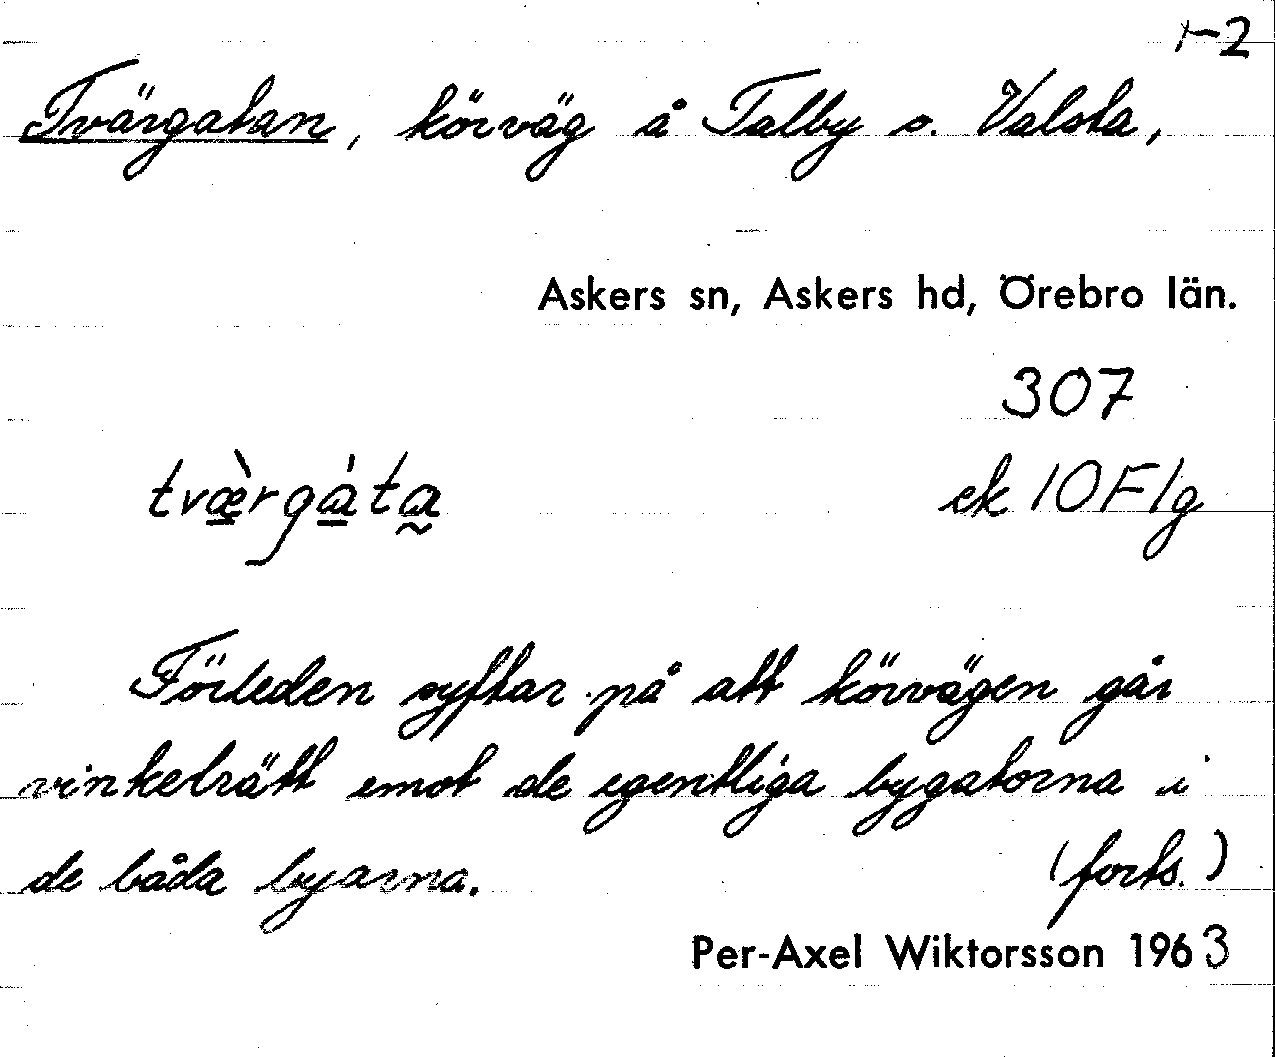 1-2
Tvärgatan, körväg å Talby o. Valsta,
Askers sn, Askers hd, Örebro län.
307
tvæ̀rgáta
ek 10F1g
Förleden syftar på att körvägen går
vinkelrätt emot de egentliga bygatorna i
de båda byarna.
(forts.)
Per-Axel Wiktorsson 1963